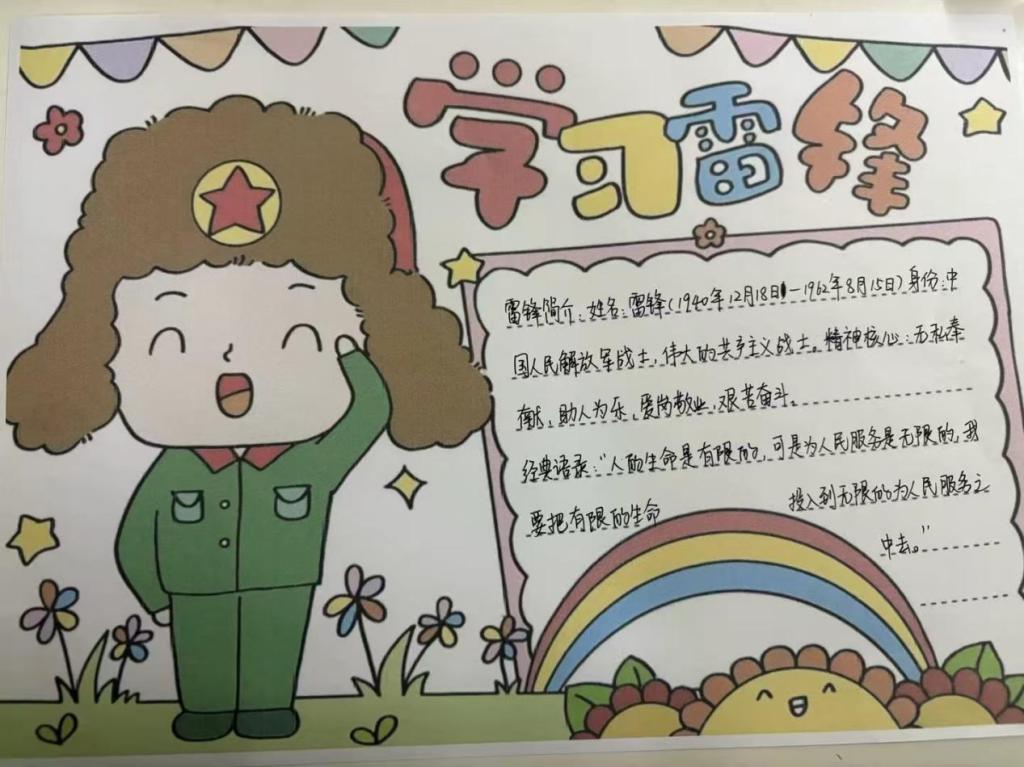 学习雷锋
雷锋简介:姓名:雷锋(1940年12月18日—1962年8月15日)身份:中
国人民解放军战士,伟大的共产主义战士。精神核心:无私奉
献,助人为乐,爱岗敬业,艰苦奋斗。
经典语录:“人的生命是有限的,可是为人民服务是无限的,我
要把有限的生命 投入到无限的为人民服务之
中去。”